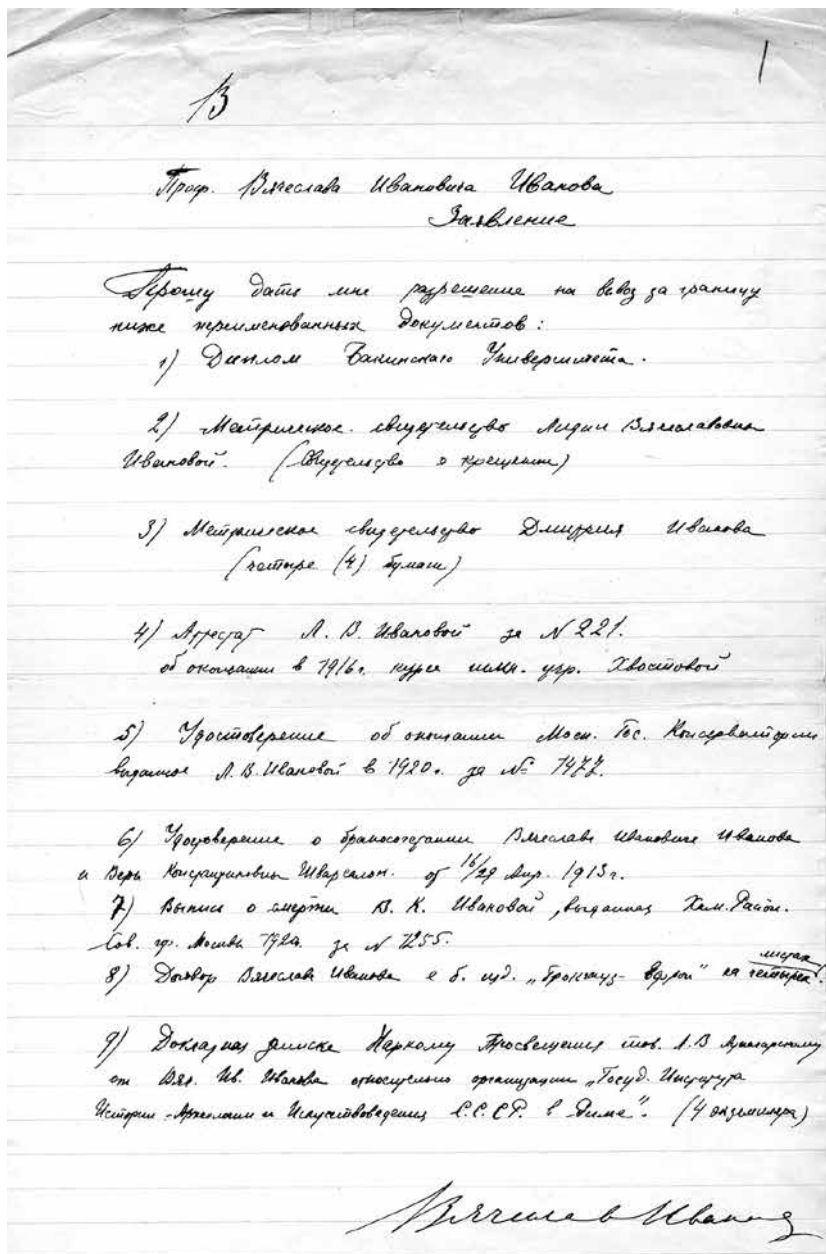 В
1
Проф. Вячеслава Ивановича Иванова
Заявление
Прошу дать мне разрешение на вывоз за границу
ниже переименованных документов:
1) Диплом Бакинскаго Университета.
2) Метрическое свидетельство Лидии Вячеславовны
Ивановой. (Свидетельство о крещении)
3) Метрическое свидетельство Дмитрия Иванова
(четыре (4) бумаги)
4) Аттестат Л. В. Ивановой за N 221.
об окончании в 1916 г. курса гимн. учр. Хвостовой
5) Удостоверение об окончании Моск. Гос. Консерватории
выданное Л. В. Ивановой в 1920 г. за № 1477.
6) Удостоверение о бракосочетании Вячеслава Ивановича Иванова
и Веры Константиновны Шварсалон. от 16/29 Апр. 1913 г.
7) Выпись о смерти В. К. Ивановой, выданная Хам. Район.
Сов. гор. Москвы 1920. за N 1255.
8) Договор Вячеслава Иванова с б. изд. „Брокгауз-Ефрон" на четырех листах.
9) Докладная записка Наркому Просвещения тов. А. В Луначарскому
от Вяч. Ив. Иванова относительно организации „Госуд. Института
Истории-Археологии и Искусствоведения С.С.С.Р. в Риме". (4 экземпляра)
Вячеслав Иванов